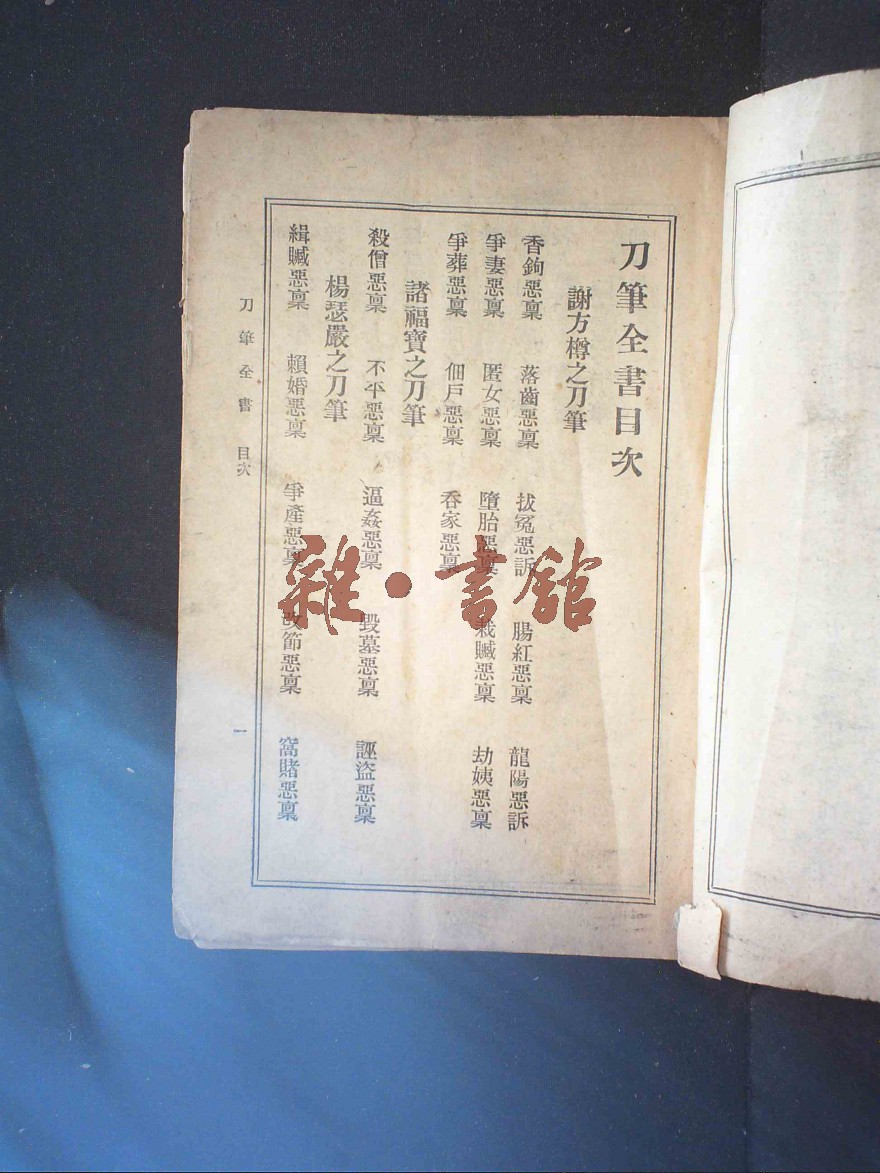 刀筆全書目次
謝方樽之刀筆
香鉤惡稟　落齒惡稟　拔冤惡訴　腸紅惡稟　龍陽惡訴
爭妻惡稟　匿女惡稟　墮胎惡稟　栽贓惡稟　劫姨惡稟
爭葬惡稟　佃戶惡稟　吞家惡稟
諸福寶之刀筆
殺僧惡稟　不平惡稟　逼姦惡稟　毀墓惡稟　誣盜惡稟
楊瑟嚴之刀筆
緝贓惡稟　賴婚惡稟　爭產惡稟　改節惡稟　窩賭惡稟
刀筆全書　目次
一
雜·書館